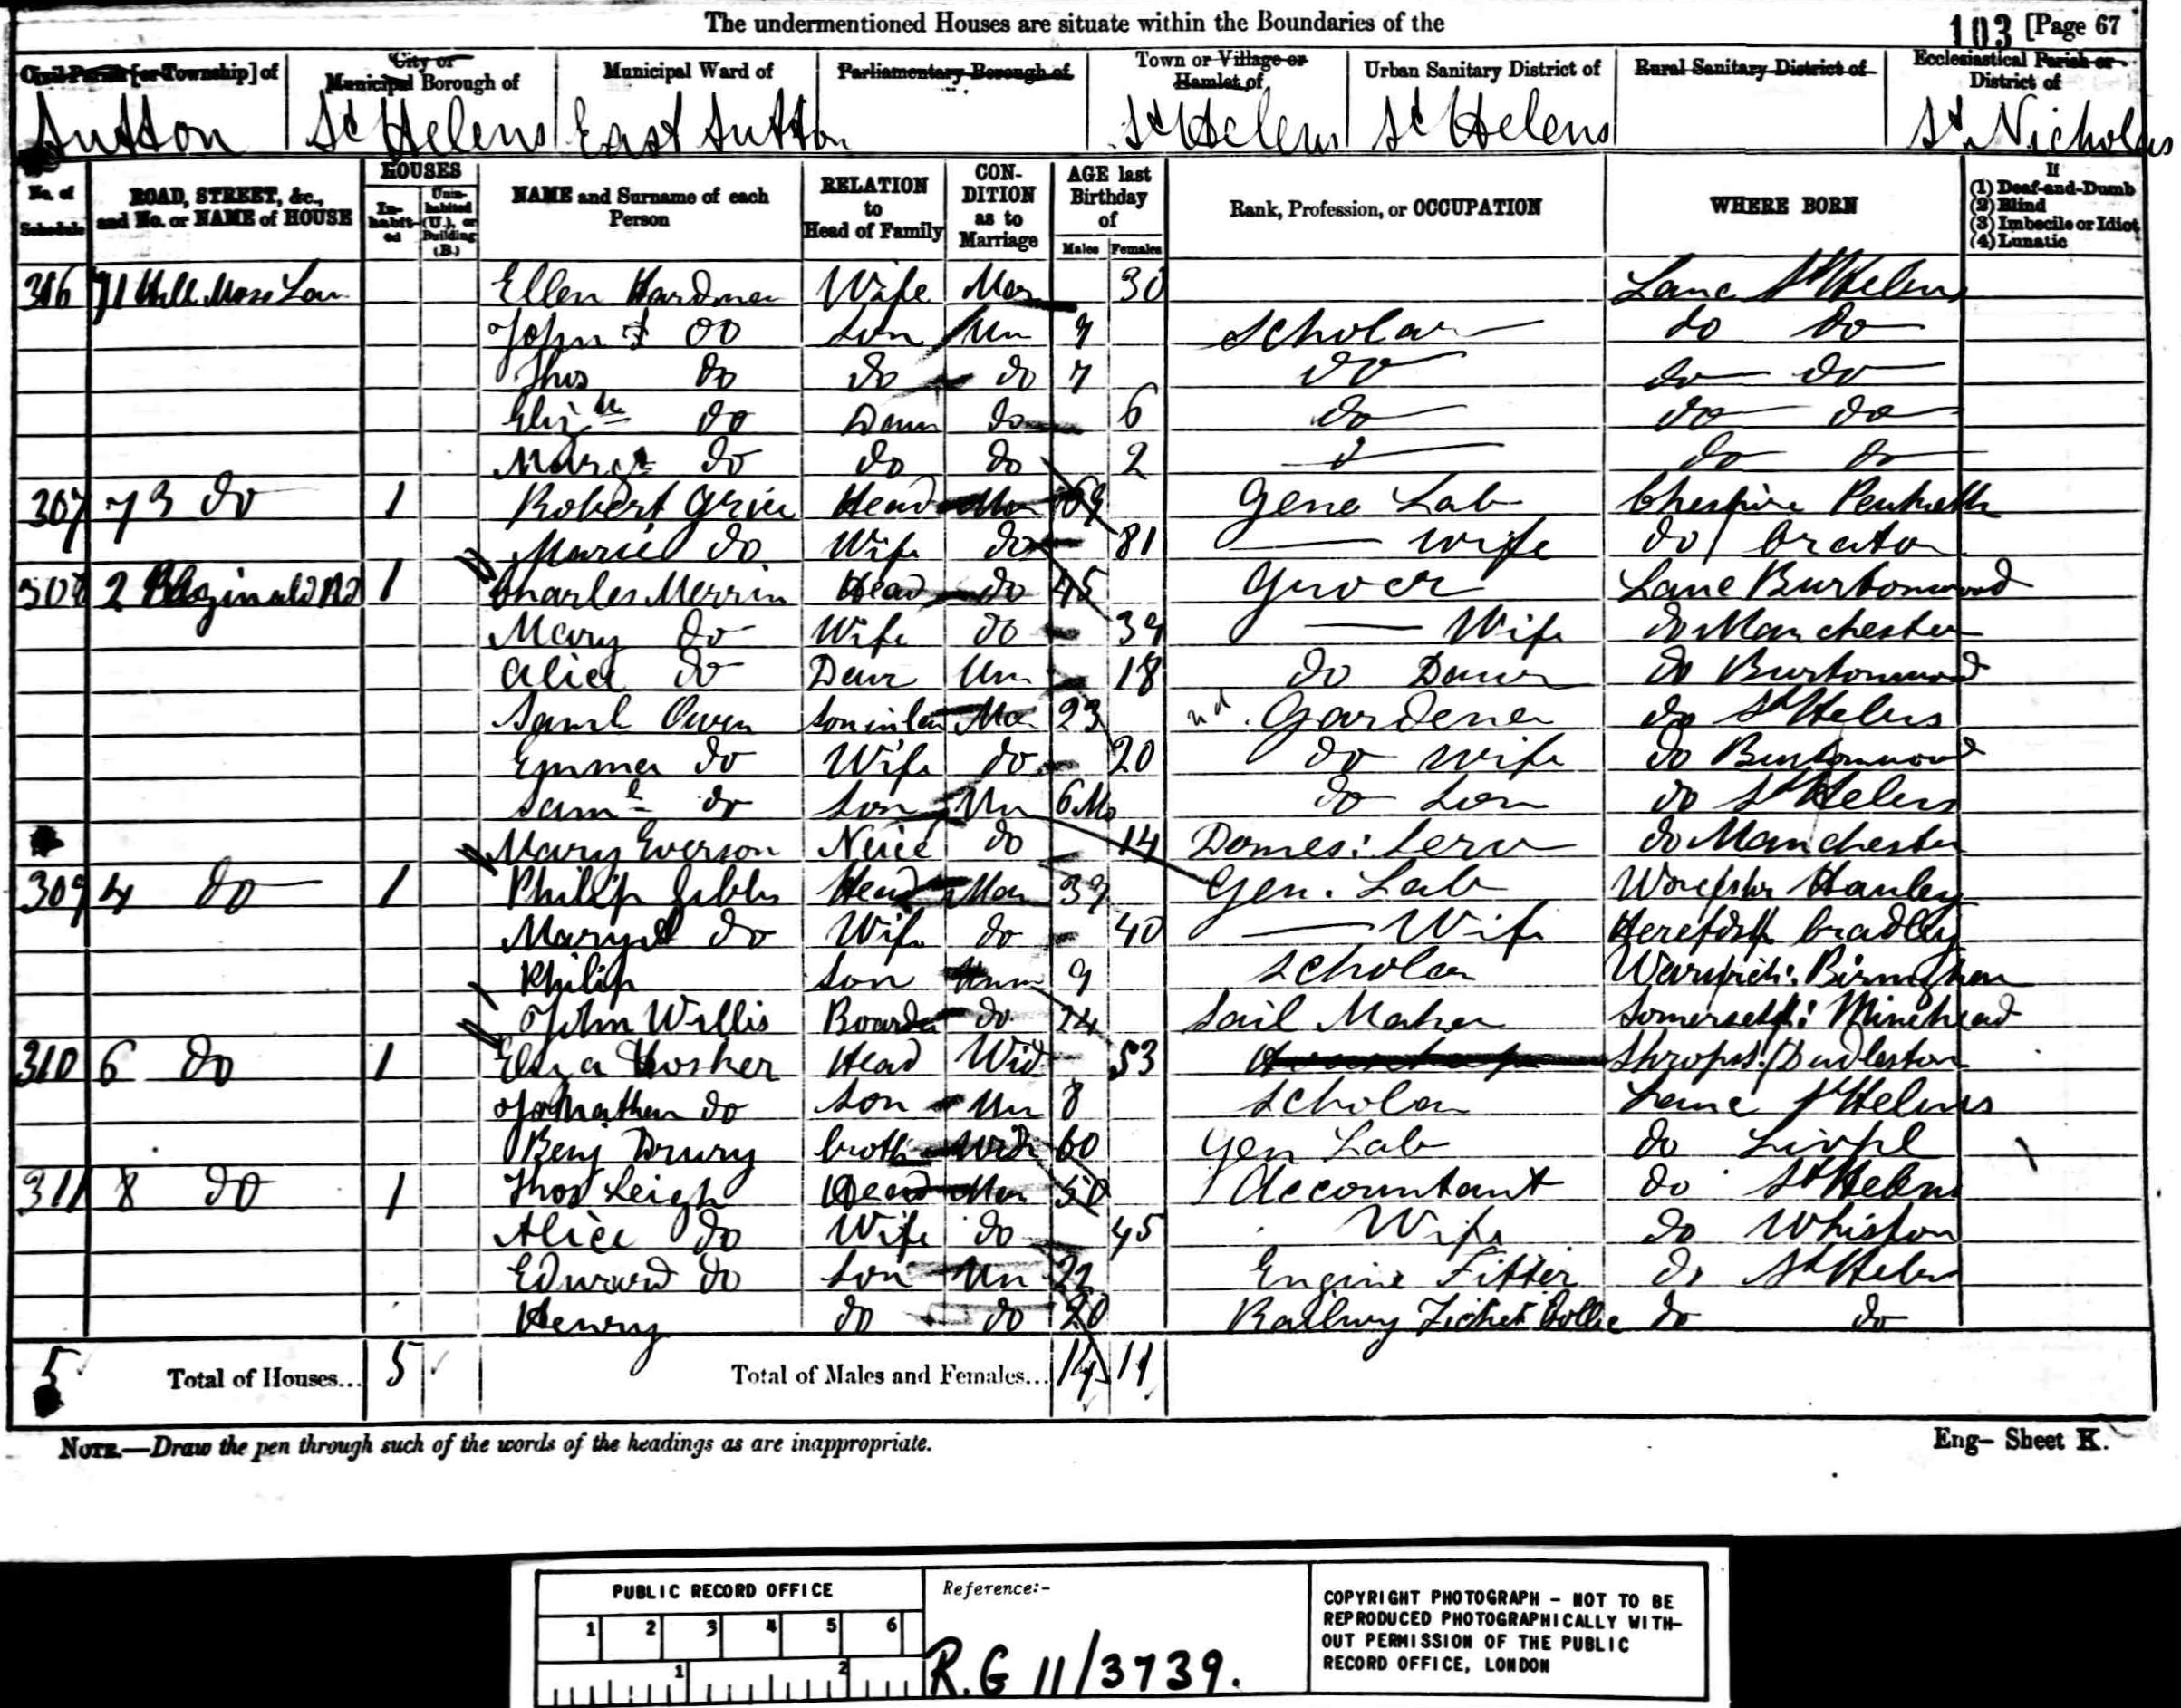 The undermentioned Houses are situate within the Boundaries of the
103 [Page 67
Civil Parish [or Township] of
City or Municipal Borough of
Municipal Ward of
Parliamentary Borough of
Town or Village or Hamlet of
Urban Sanitary District of
Rural Sanitary District of
Ecclesiastical Parish or District of
Sutton St Helens East Sutton St Helens St Helens St Nicholas
No. of Schedule
ROAD, STREET, &c., and No. or NAME of HOUSE
HOUSES
In-habit-ed
Unin-habited (U.), or Building (B.)
NAME and Surname of each Person
RELATION to Head of Family
CON-DITION as to Marriage
AGE last Birthday of
Males Females
Rank, Profession, or OCCUPATION
WHERE BORN
If
(1) Deaf-and-Dumb
(2) Blind
(3) Imbecile or Idiot
(4) Lunatic
306 71 Ellen Hardman Wife Mar 30 Lanc St Helens
John do Son Un 9 Scholar do do
Thos do do do 7 do do do
Elizth do Daur do 6 do do do
Margt do do do 2 do do
307 73 do 1 Robert Grice Head Mar 69 Gene Lab Cheshire
Maria do Wife do 81 wife do
308 2 Reginald Rd 1 Charles Merrin Head do 45 Grocer Lanc Burtonwood
Mary do Wife do 39 Wife do Manchester
Alice do Daur Un 18 do Daur do Burtonwood
Saml Owen Son in law Mar 23 Gardener do St Helens
Emma do Wife do 20 do wife do Burtonwood
Saml do Son Un 6 Mo do Son do St Helens
Mary Everson Neice do 14 Domes: Serv do Manchester
309 4 do 1 Philip Gibbs Head Mar 39 Gen. Lab Worcester Hanley
Mary A do Wife do 40 Wife Herefords Cradley
Philip Son Unm 9 Scholar Warwick: Birmingham
John Willis Boarder do 24 Sail Maker Somersets: Minehead
310 6 do 1 Eliza Hosker Head Wid 53 Shrops: Dudleston
Jonathan do Son Un 8 Scholar Lanc St Helens
Benj Drury broth Wid 60 Gen Lab do Livpl
311 8 do 1 Thos Leigh Head Mar 50 Accountant do St Helens
Alice do Wife do 45 Wife do Whiston
Edward do Son Un 22 Engine Fitter do St Helens
Henry do do 20 Railway Ticket Collec do do
5 Total of Houses... 5 Total of Males and Females... 14 11
NOTE.—Draw the pen through such of the words of the headings as are inappropriate.
Eng- Sheet K.
PUBLIC RECORD OFFICE
1 2 3 4 5 6
1 2
Reference:-
R.G 11/3739.
COPYRIGHT PHOTOGRAPH - NOT TO BE
REPRODUCED PHOTOGRAPHICALLY WITH-
OUT PERMISSION OF THE PUBLIC
RECORD OFFICE, LONDON